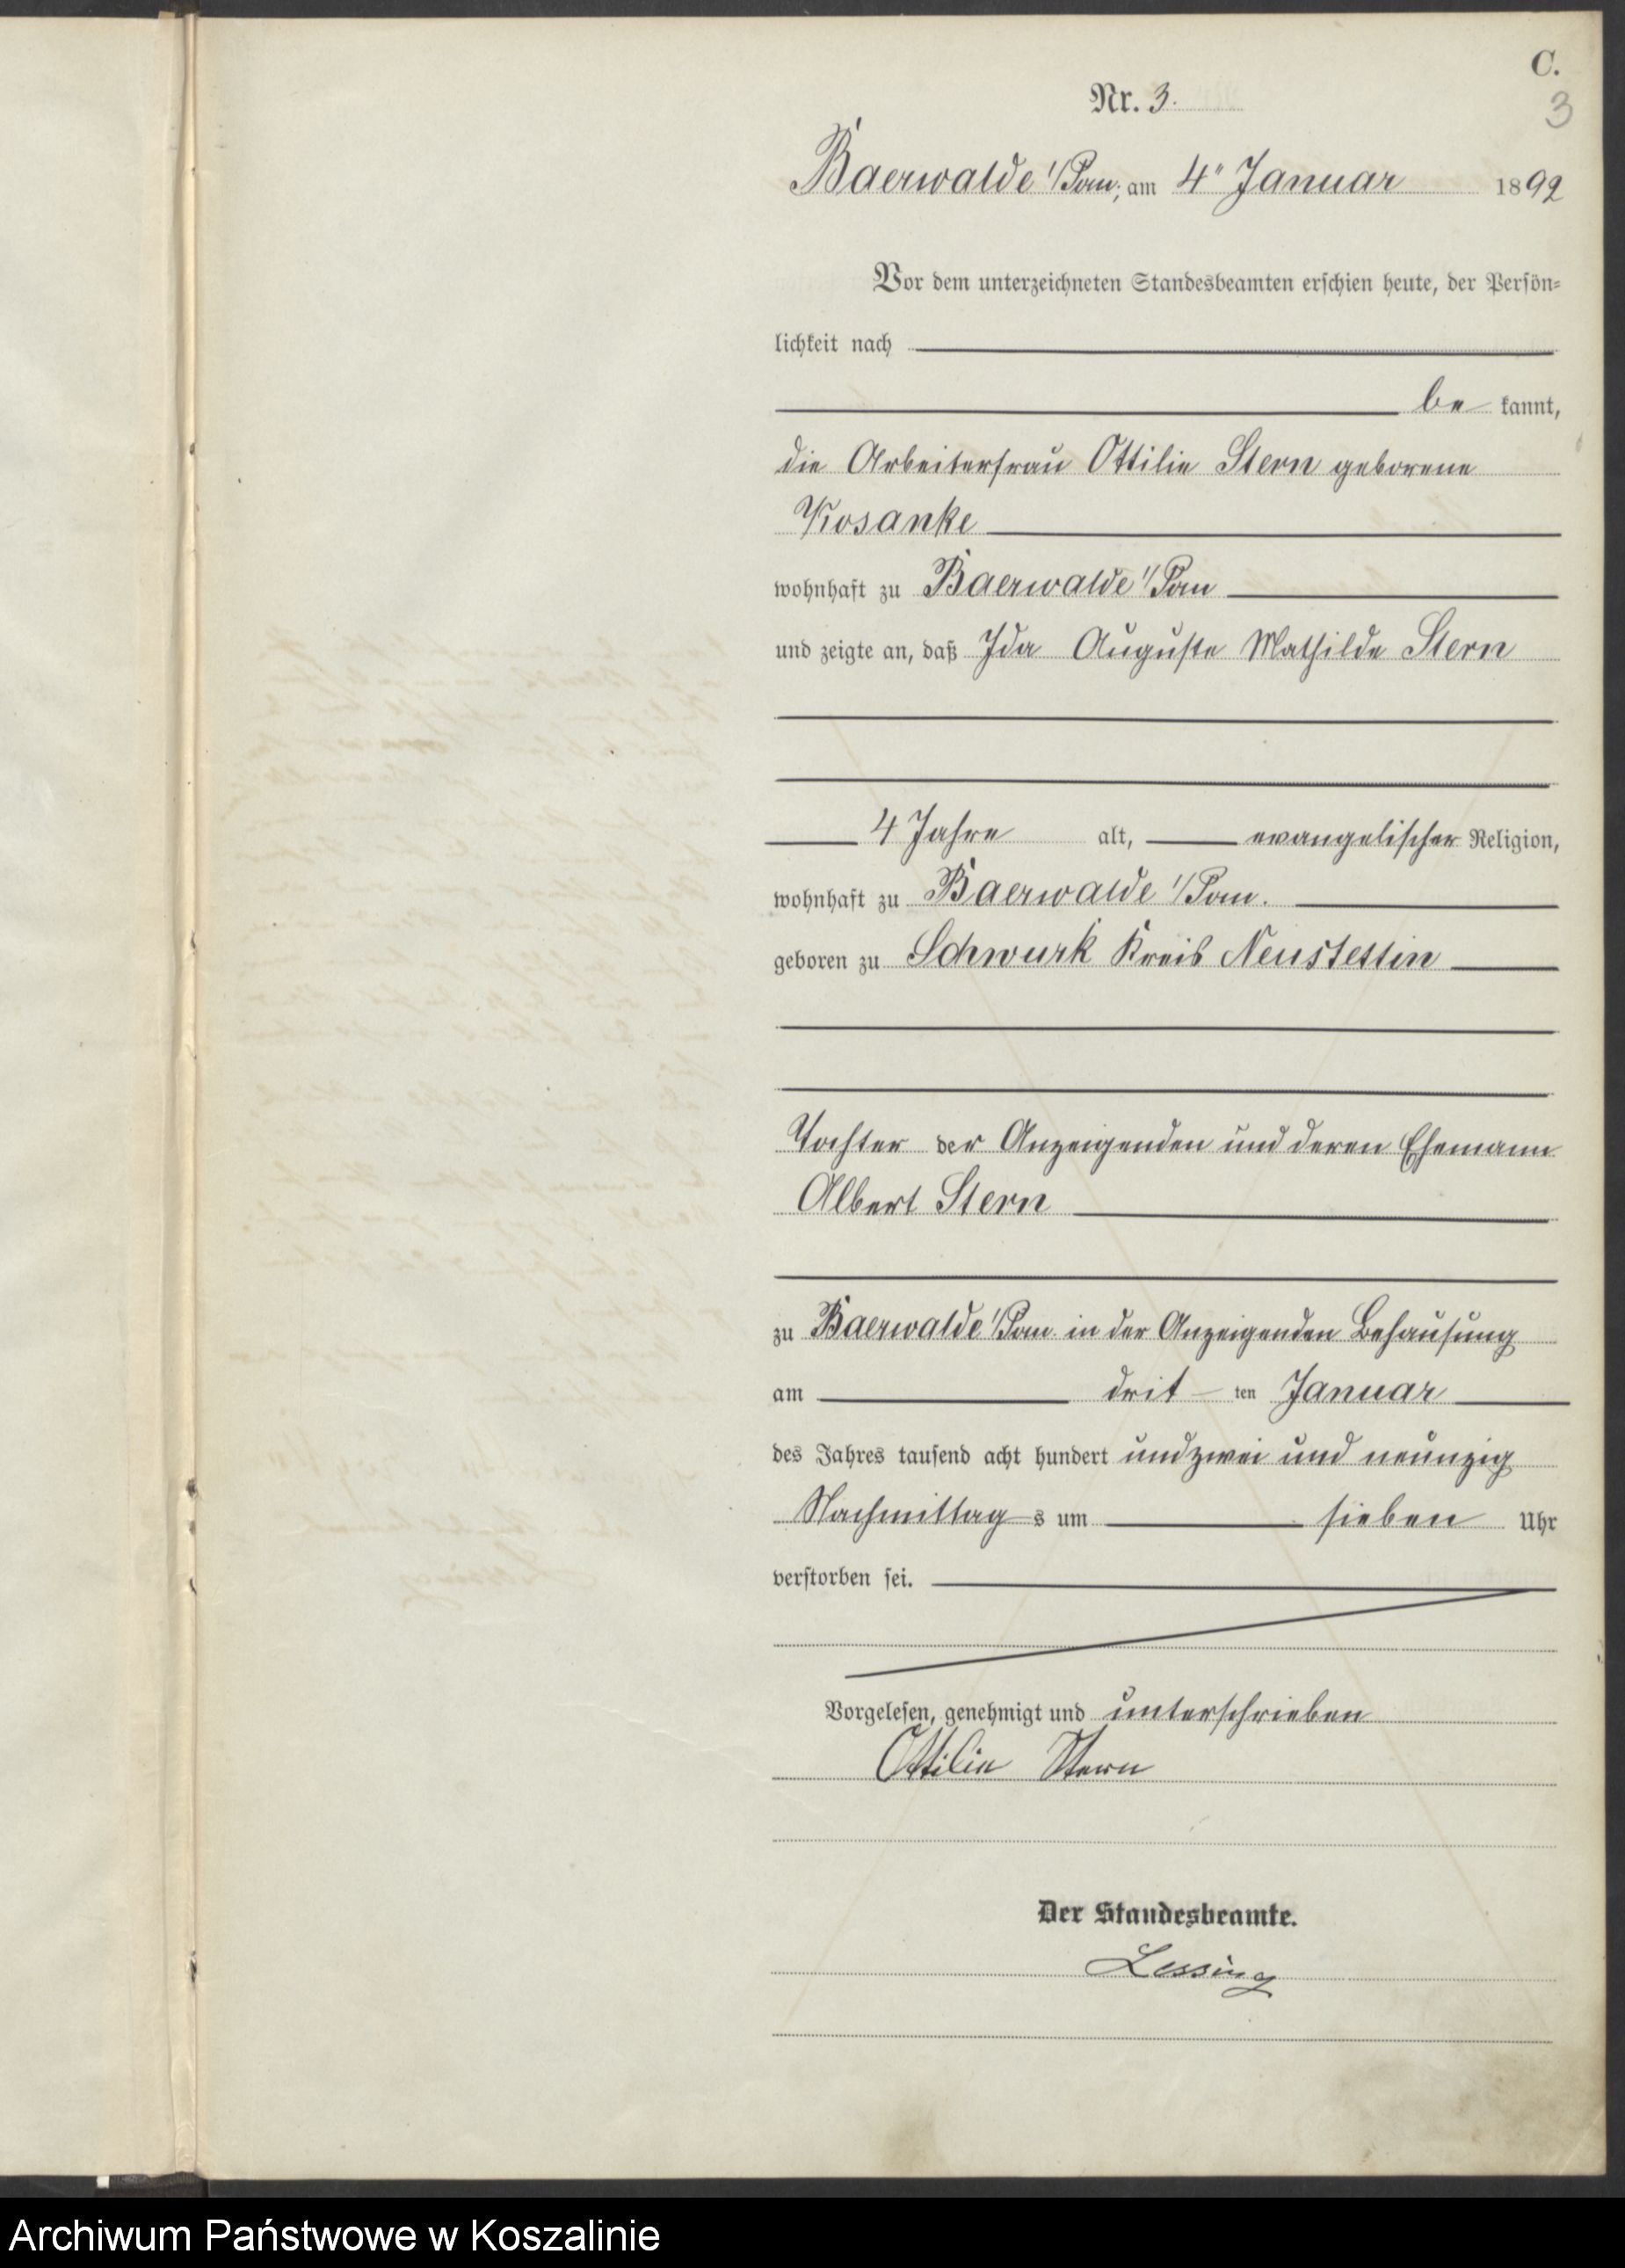 C.
3
Nr. 3.
Baerwalde i/Pom, am 4" Januar 1892
Vor dem unterzeichneten Standesbeamten erschien heute, der Persön-
lichkeit nach
be kannt,
die Arbeiterfrau Ottilie Stern geborene
Kosanke
wohnhaft zu Baerwalde i/Pom
und zeigte an, daß Ida Auguste Mathilde Stern
4 Jahre alt, evangelischer Religion,
wohnhaft zu Baerwalde i/Pom.
geboren zu Schwurk Kreis Neustettin
Tochter der Anzeigenden und deren Ehemann
Albert Stern
zu Baerwalde i/Pom in der Anzeigenden Behausung
am drit ten Januar
des Jahres tausend acht hundert und zwei und neunzig
Nachmittag s um sieben Uhr
verstorben sei.
Vorgelesen, genehmigt und unterschrieben
Ottilie Stern
Der Standesbeamte.
Lessing
Archiwum Państwowe w Koszalinie